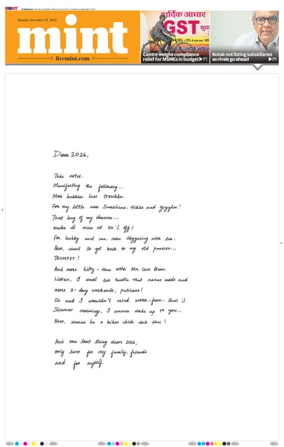 mint
mint
livemint.com
हार्दिक आभार
GST
Centre weighs compliance
relief for MSMEs in budget
Kotak not listing subsidiaries
as rivals go ahead
Dear 2026,
Take notes.
Manifesting the following...
More bubble less trouble.
For my little miss Sunshine, tickles and giggles!
That bag of my dreams...
Make it mine at 50% off!
For hubby and me, more
Also, want to get back to my old passion...
TRUMPET!
And more kitty-time with
listen, I want less hustle that names me and
more 3-day weekends, puhleese!
Oh and I wouldn't mind work-from-
Slower mornings, I wanna wake up to you...
Also, wanna be a biker chick one time!
And one last thing dear 2026,
only love for my family, friends
and for myself.